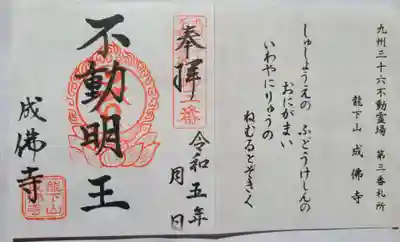 九州三十六不動霊場　第三番札所
龍下山　成佛寺
しゅしょうえの　ふどうけしんの
おにがまい
いわやにりゅうの
ねむるとぞきく
奉拝
令和五年
月　日
不動明王
成佛寺